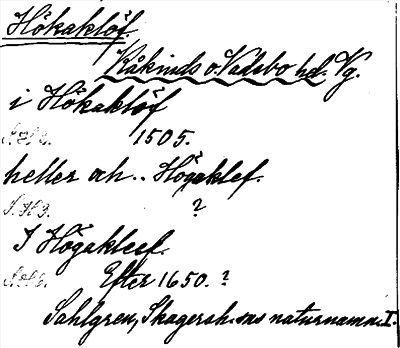 Hökaklöf.
Kåkinds o. Vadsbo hd. Vg.
i Hökaklöf
1505.
heller och .. Högaklef.
?
I Högakleef.
Efter 1650. ?
Sahlgren, Skagersh.sns naturnamn I.